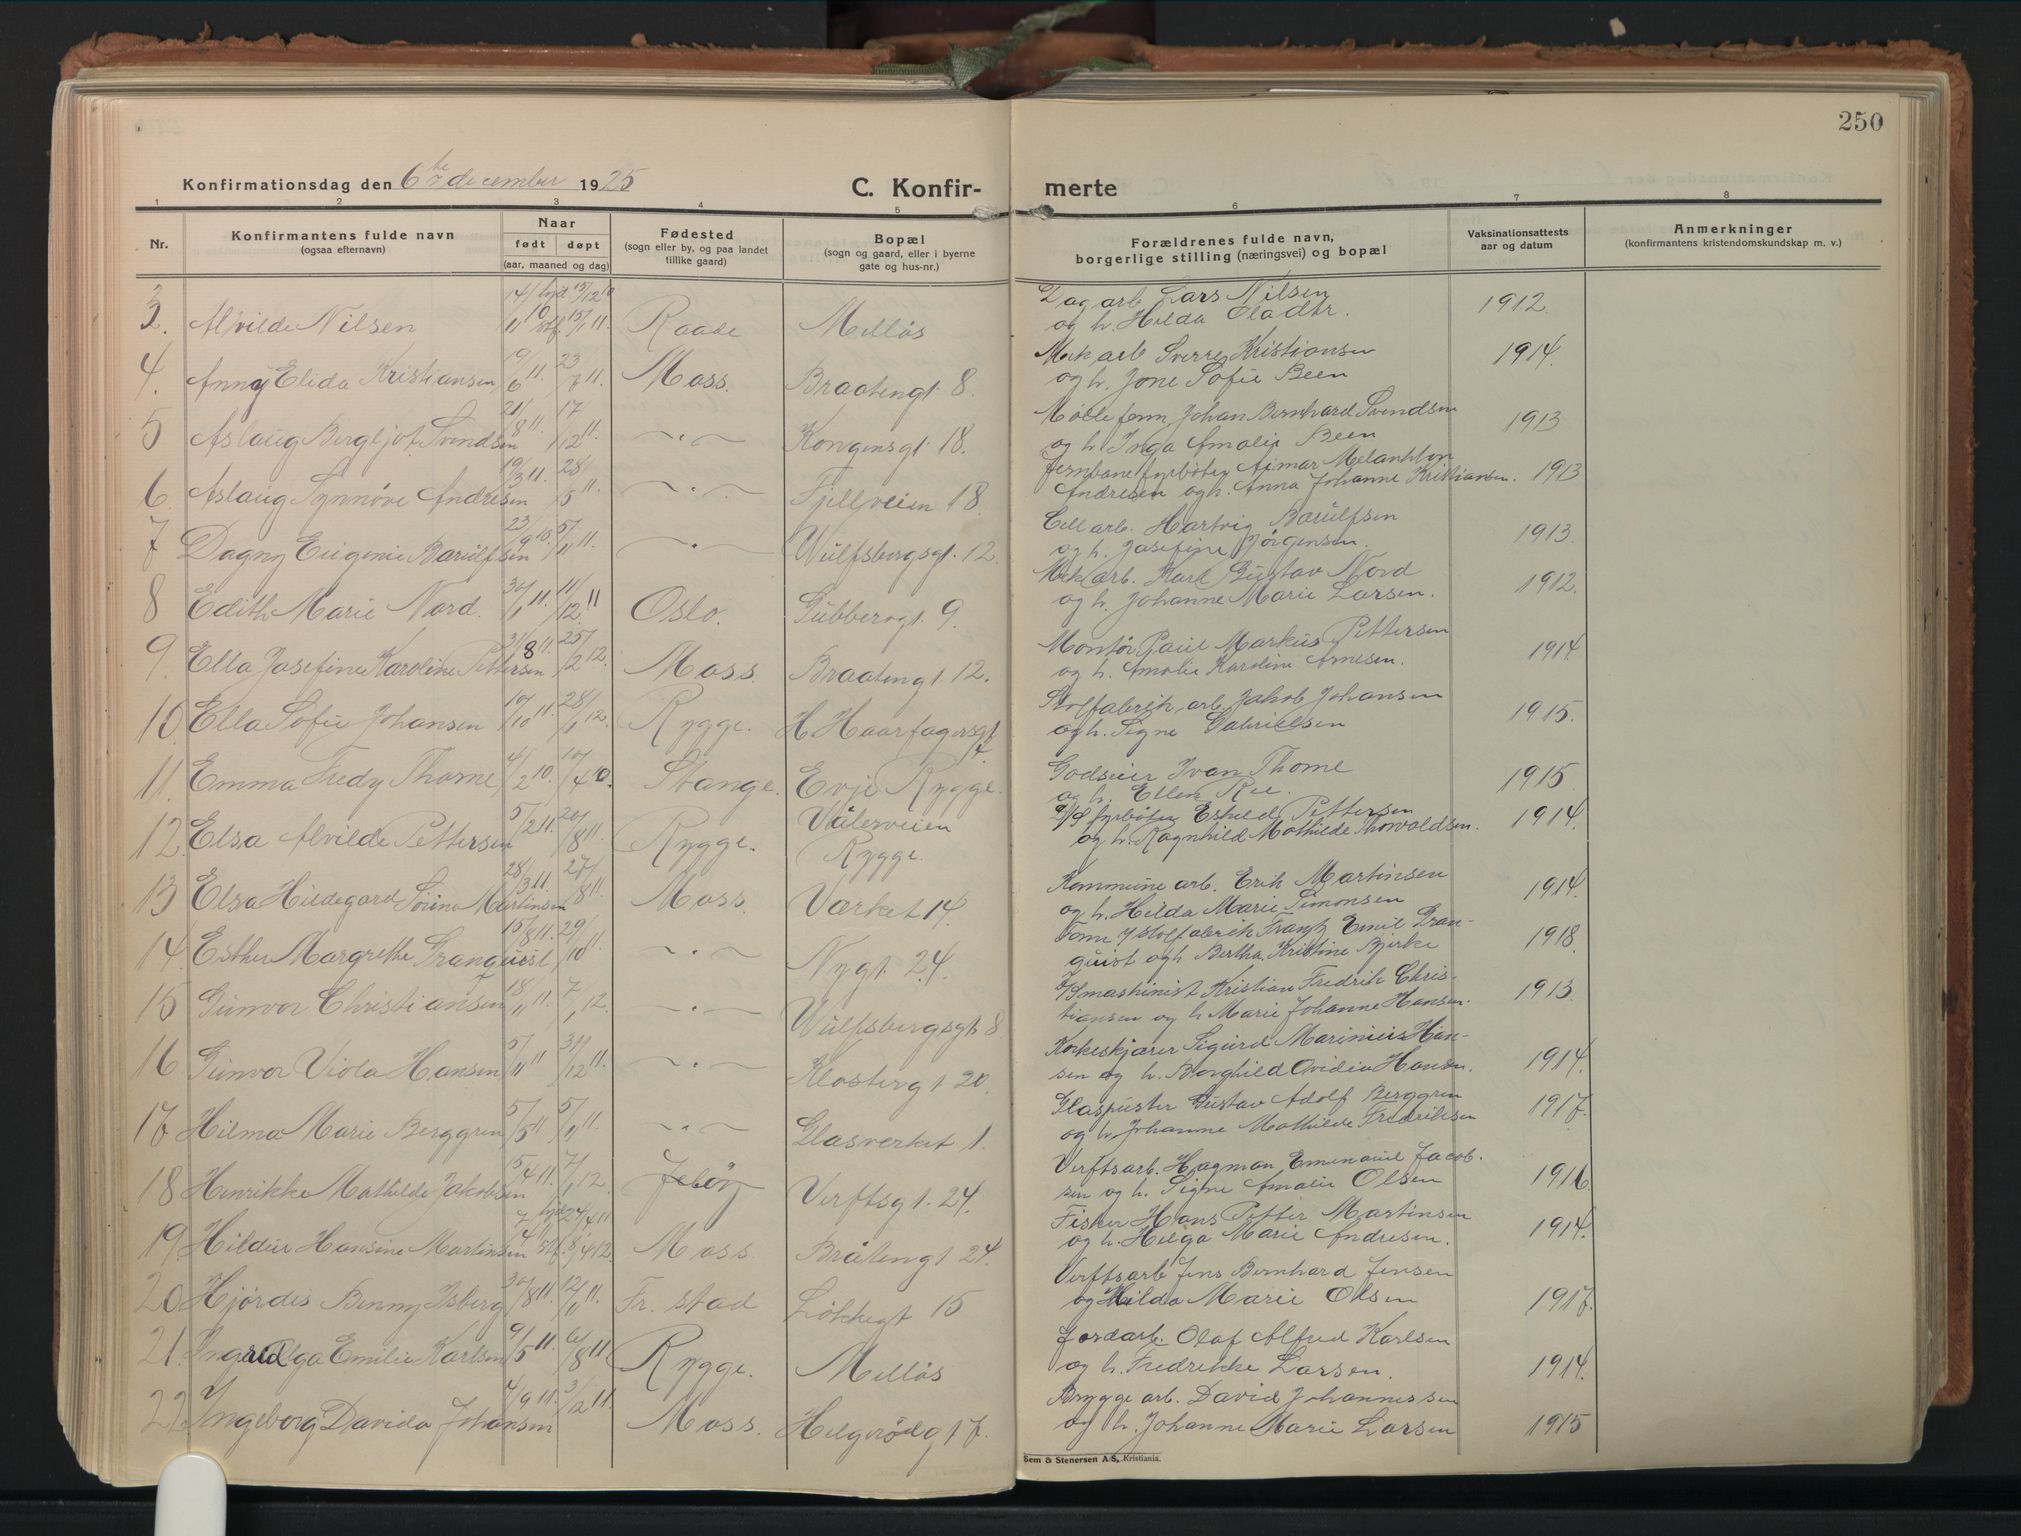 250
Konfirmationsdag den 6te december 1925
C. Konfir-
merte
1 2 3 4 5 6 7 8
Nr.
Konfirmantens fulde navn
(ogsaa efternavn)
Naar
født døpt
(aar, maaned og dag)
Fødested
(sogn eller by, og paa landet
tillike gaard)
Bopæl
(sogn og gaard, eller i byerne
gate og hus-nr.)
Forældrenes fulde navn,
borgerlige stilling (næringsvei) og bopæl
Vaksinationsattests
aar og datum
Anmerkninger
(konfirmantens kristendomskundskap m. v.)
3. Alvilde Nilsen Raade Melløs
Dagarb. Lars Nilsen
og h. Hilda Oladtr. 1912.
4. Anny Elida Kristiansen 9/6 11. 23/7 11. Moss. Braatengt. 8.
Mek arb Sverre Kristiansen
og h. Jone Sofie Been 1914.
5 Aslaug Bergljot Svendsen 21/8 11. 17/12 11. -"- Kongensgt. 18.
Mølle form. Johan Bernhard Svendsen
og h. Inga Amalie Been 1913
6. Aslaug Synnøve Andresen 19/3 11. 28/5 11. -"- Fjellveien 18
Jernbane fyrbøter Ajmar Melankton
Andresen og h. Anna Johanne Kristiansen. 1913
7 Dagny Eugenie Barulfsen 23/9 10. 5/11 11. -"- Wulfsbergsgt. 12.
Cell arb. Hartvig Barulfsen
og h. Josefine Jørgensen. 1913.
8 Edith Marie Nord. 30/1 11. 11/12 11 Oslo. Gubberogt. 9.
Mek arb. Karl Gustav Nord
og h. Johanne Marie Larsen. 1912.
9. Ella Josefine Karoline Pettersen 31/8 11. 25/2 12. Moss. Braatengt. 12.
Montør Paul Markus Pettersen
og h. Amalie Karoline Arnesen. 1914
10 Ella Sofie Johansen 10/10 11. 28/1 12. Rygge. H Haarfagersgt
7.
Stolfabrik arb. Jakob Johansen
og h. Signe Gabrielsen 1915.
11. Emma Fredy Thorne 4/2 10. 10/4 10. Stange. Evje Rygge.
Godseier Ivan Thorne
og h. Ellen Ree. 1915.
12. Elsa Alvilde Pettersen 5/2 11. 20/8 11. Rygge. Vålerveien
Rygge.
D/S fyrbøter Eskild Pettersen
og h. Ragnhild Mathilde Thorvaldsen. 1914.
13 Elsa Hildegard Sørine Martinsen 28/3 11. 27/8 11. Moss. Værket 14.
Kommune arb. Erik Martinsen
og h. Hilda Marie Simonsen 1914.
14. Esther Margrethe Granquist 15/8 11. 29/10 11. -"- Nygt. 24.
Form. i Stolfabrik Frantz Emil Gran-
quist og h Bertha Kristine Bjerke 1918.
15 Gunvor Christiansen 18/11 11. 7/1 12. -"- Wulfsbergsgt. 8
D/S maskinist Kristian Fredrik Chris-
tiansen og h Marie Johanne Hansen. 1913.
16 Gunvor Viola Hansen 5/11 11 31/12 11. -"- Klostergt 20.
Korkeskjærer Sigurd Marinius Han-
sen og h. Borghild Ovidia Hansen. 1914.
17 Hilma Marie Berggren 5/5 11 5/11 11. -"- Glasverket 1.
Glaspuster Gustav Adolf Berggren
og h. Johanne Mathilde Fredriksen 1917.
18 Henrikke Mathilde Jakobsen 5/4 11. 7/1 12. Jeløy Verftsgt. 24.
Verftsarb. Hagman Emanuel Jacob-
sen og h. Signe Amalie Olsen 1916.
19. Hildur Hansine Martinsen Moss. Bråtengt 24.
Fisker Hans Petter Martinsen
og h. Helga Marie Andresen. 1914.
20 Hjørdis Benny Isberg 30/8 11. 12/11 11. Fr. stad Løkkegt 15
Verftsarb Jens Bernhard Jensen
og Hilda Marie Olsen 1917.
21. Ingrid Olga Emilie Karlsen 9/5 11. 6/8 11 Rygge. Melløs
Jordarb. Olaf Alfred Karlsen
og h. Fredrikke Larsen. 1914.
22. Ingeborg Davida Johansen 4/9 11. 3/12 11. Moss. Helgerødgt 7.
Brygge arb. David Johannessen
og h. Johanne Marie Larsen 1915
Sem & Stenersen A/S, Kristiania.